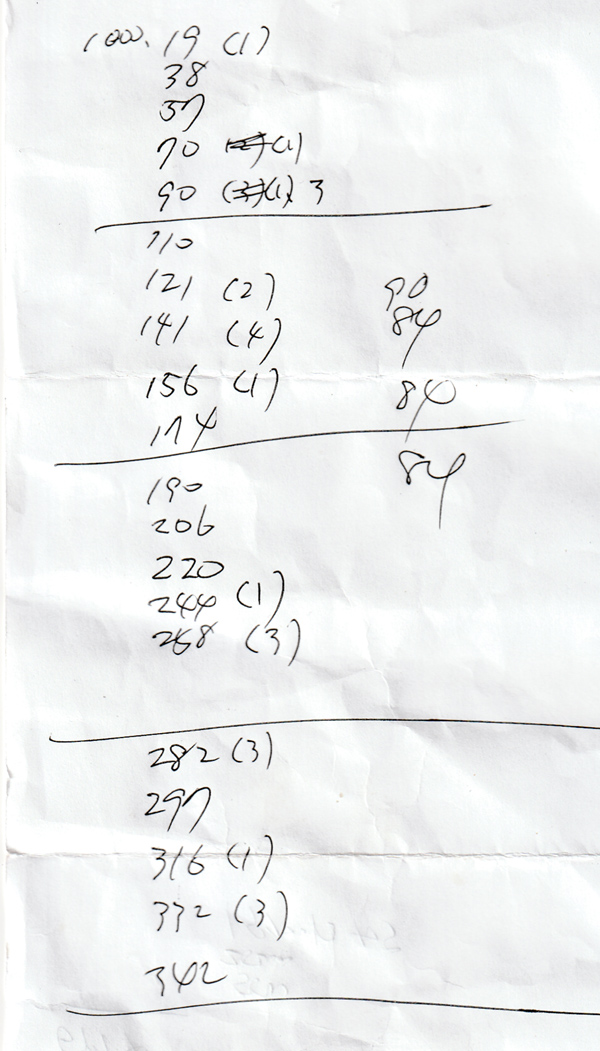 1000. 19 (1)
38
57
70 (1)
90 (1) 3
110
121 (2)
141 (4)
156 (1)
174
190
206
220
244 (1)
268 (3)
282 (3)
297
316 (1)
332 (3)
342
90
84
84
84